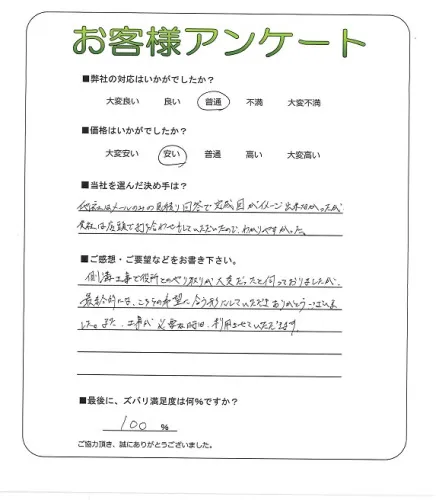 お客様アンケート
■弊社の対応はいかがでしたか?
大変良い 良い 普通 不満 大変不満
■価格はいかがでしたか?
大変安い 安い 普通 高い 大変高い
■当社を選んだ決め手は?
他社はメールのみの見積り回答で完成図がイメージ出来なかったが
貴社は店頭で打ち合わせをしていただいたので、わかりやすかった。
■ご感想・ご要望などをお書き下さい。
側溝工事で役所とのやり取りが大変だったと伺っておりましたが、
最終的には、こちらの希望に合う形にしていただきありがとうございま
した。また、工事が必要な時は、利用させていただきます。
■最後に、ズバリ満足度は何%ですか?
100 %
ご協力頂き、誠にありがとうございました。